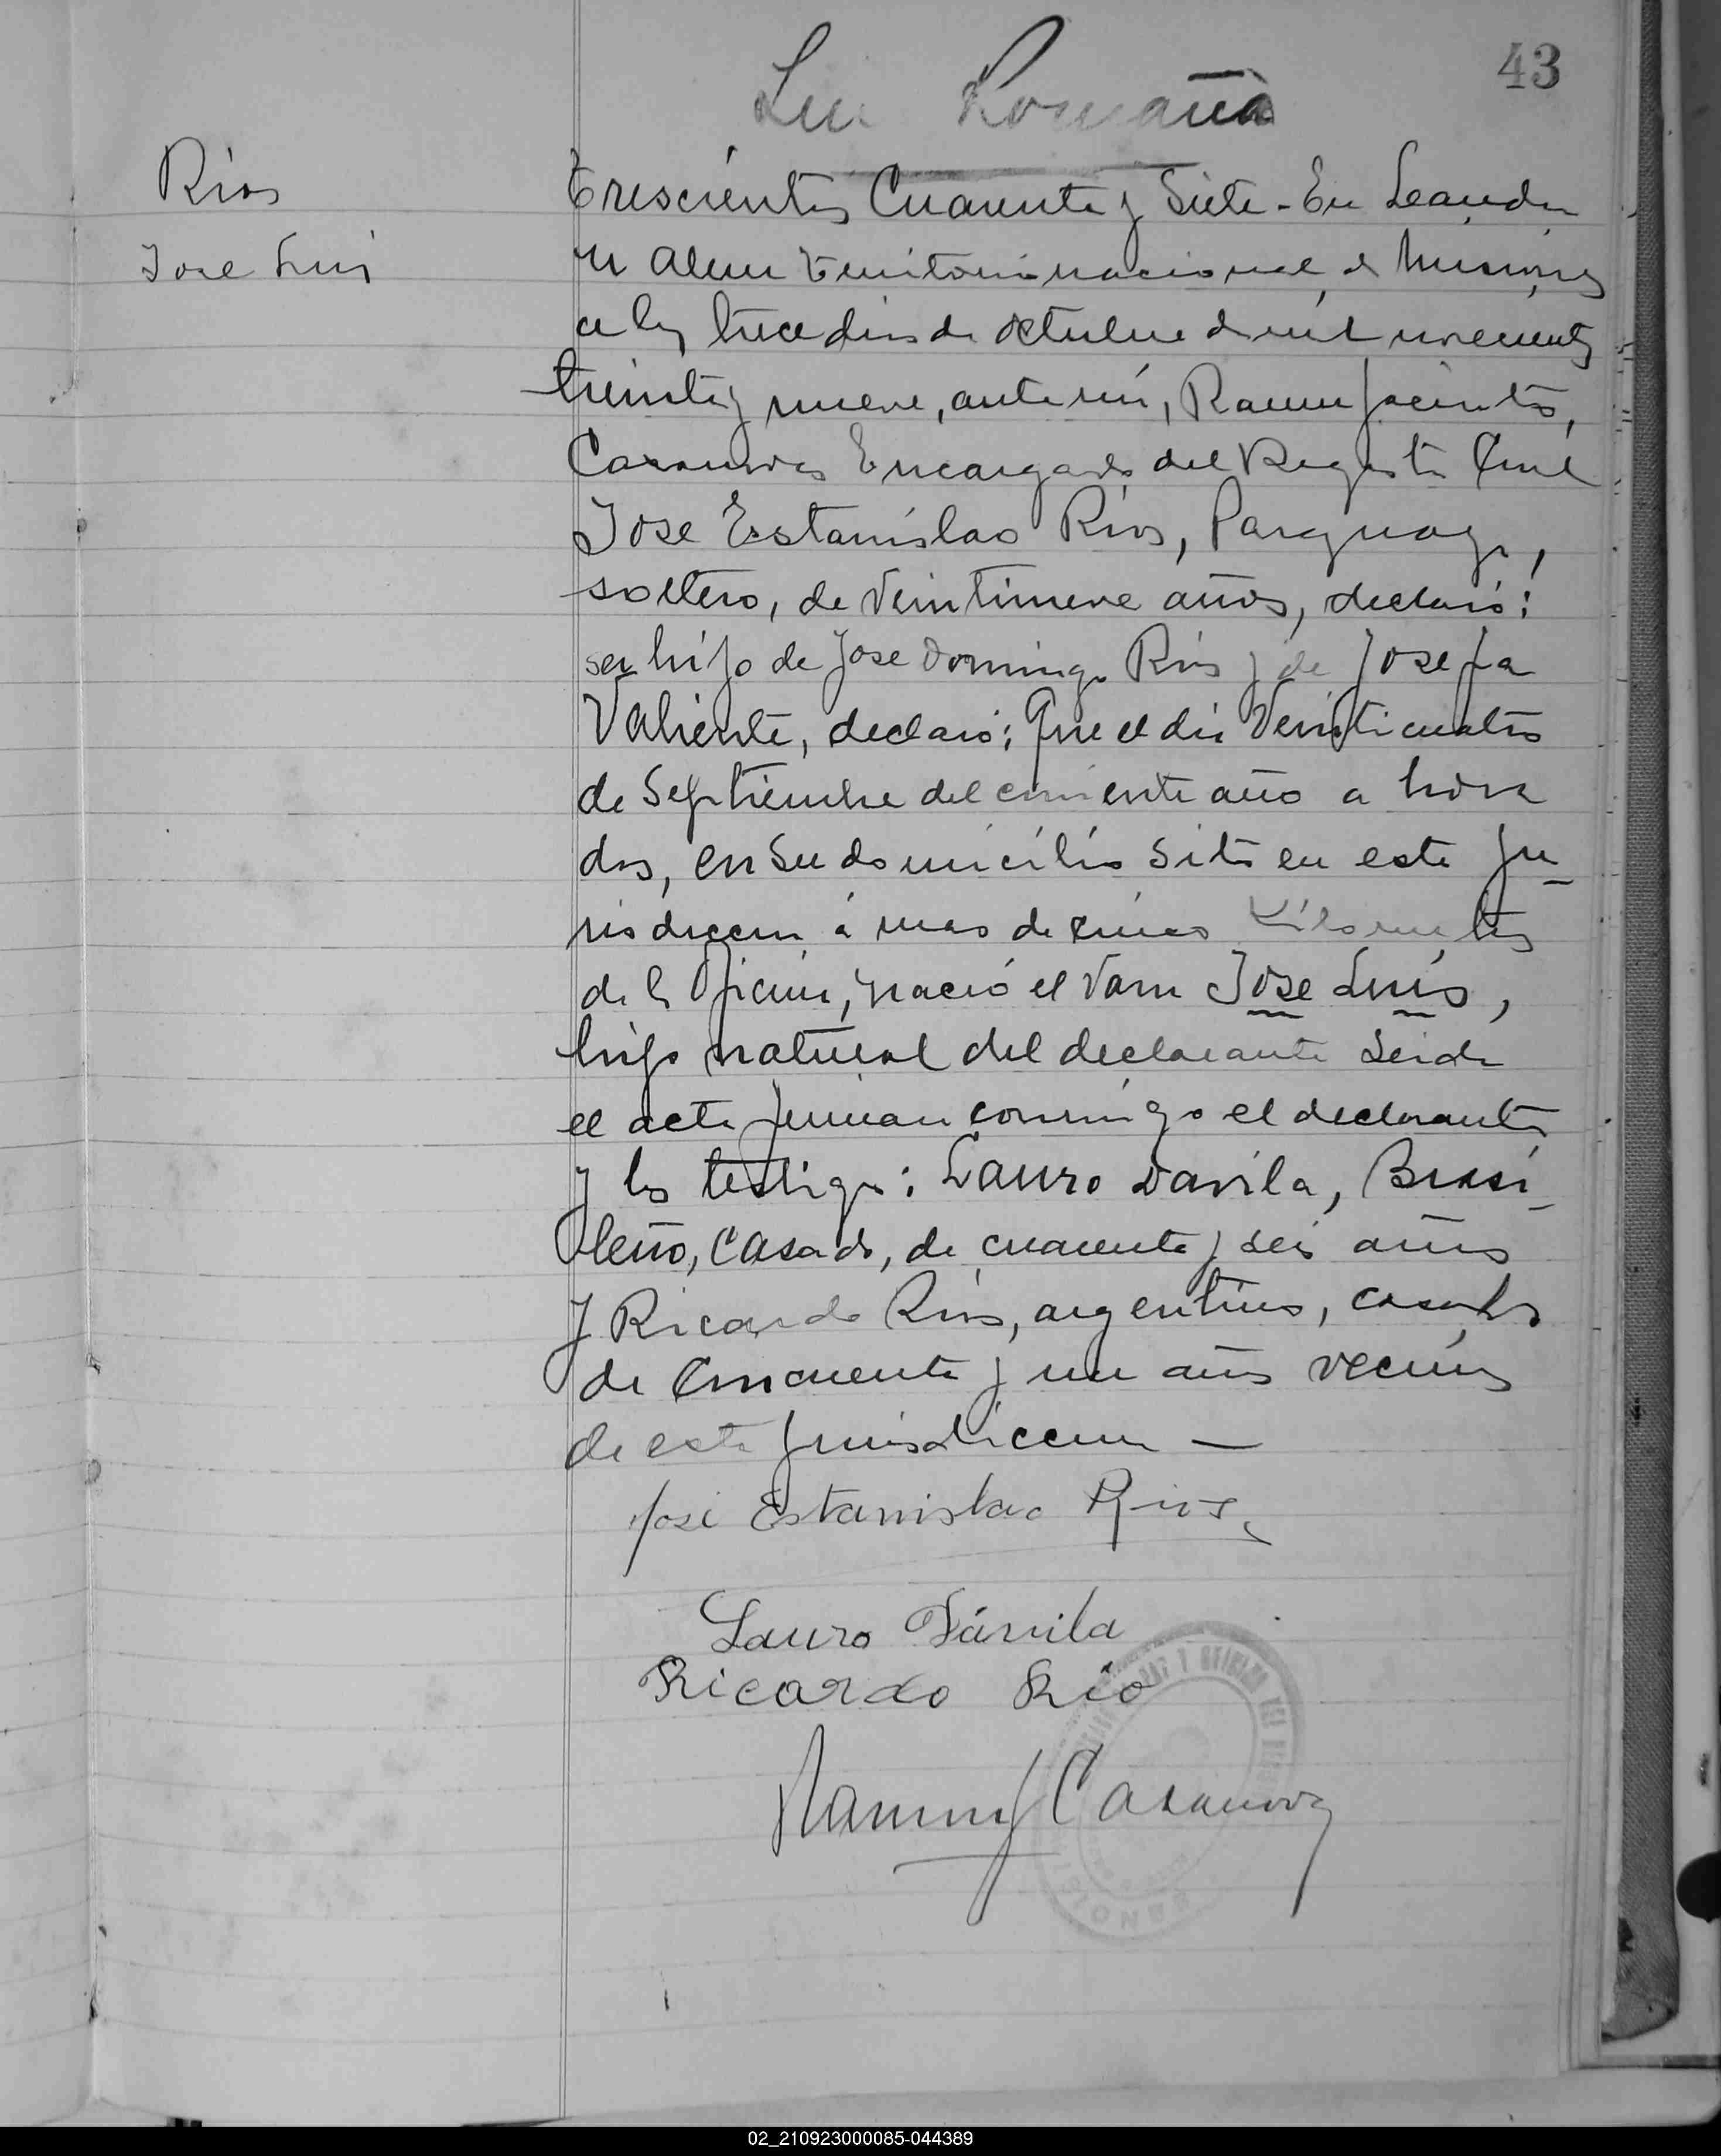 43
Rios
Jose Luis
Trescientos Cuarenta y Siete - En Leandro
N Alem Territorio nacional de Misiones
a los trece dias de octubre de mil novecientos
treinta y nueve, ante mi, Ramon Jacinto
Casanova Encargado del Registro Civil
Jose Estanislao Rios, Paraguayo,
soltero, de Veintinueve años, declaró:
ser hijo de Jose Domingo Rios y de Josefa
Valiente, declaró: Que el dia Veinticuatro
de Septiembre del corriente año a hora
dos, en su domicilio sito en esta Ju-
risdiccion á mas de cinco Kilometros
de la Oficina, nació el Varon Jose Luis,
hijo natural del declarante Leida
el acta firman conmigo el declarante
y los testigos: Lauro Davila, Brasi-
leño, Casado, de cuarenta y seis años
y Ricardo Rios, argentino, casado
de Cincuenta y un años vecinos
de esta Jurisdiccion —
José Estanislao Rios
Lauro Dávila
Ricardo Rio
Ramon J Casanova
02_210923000085-044389